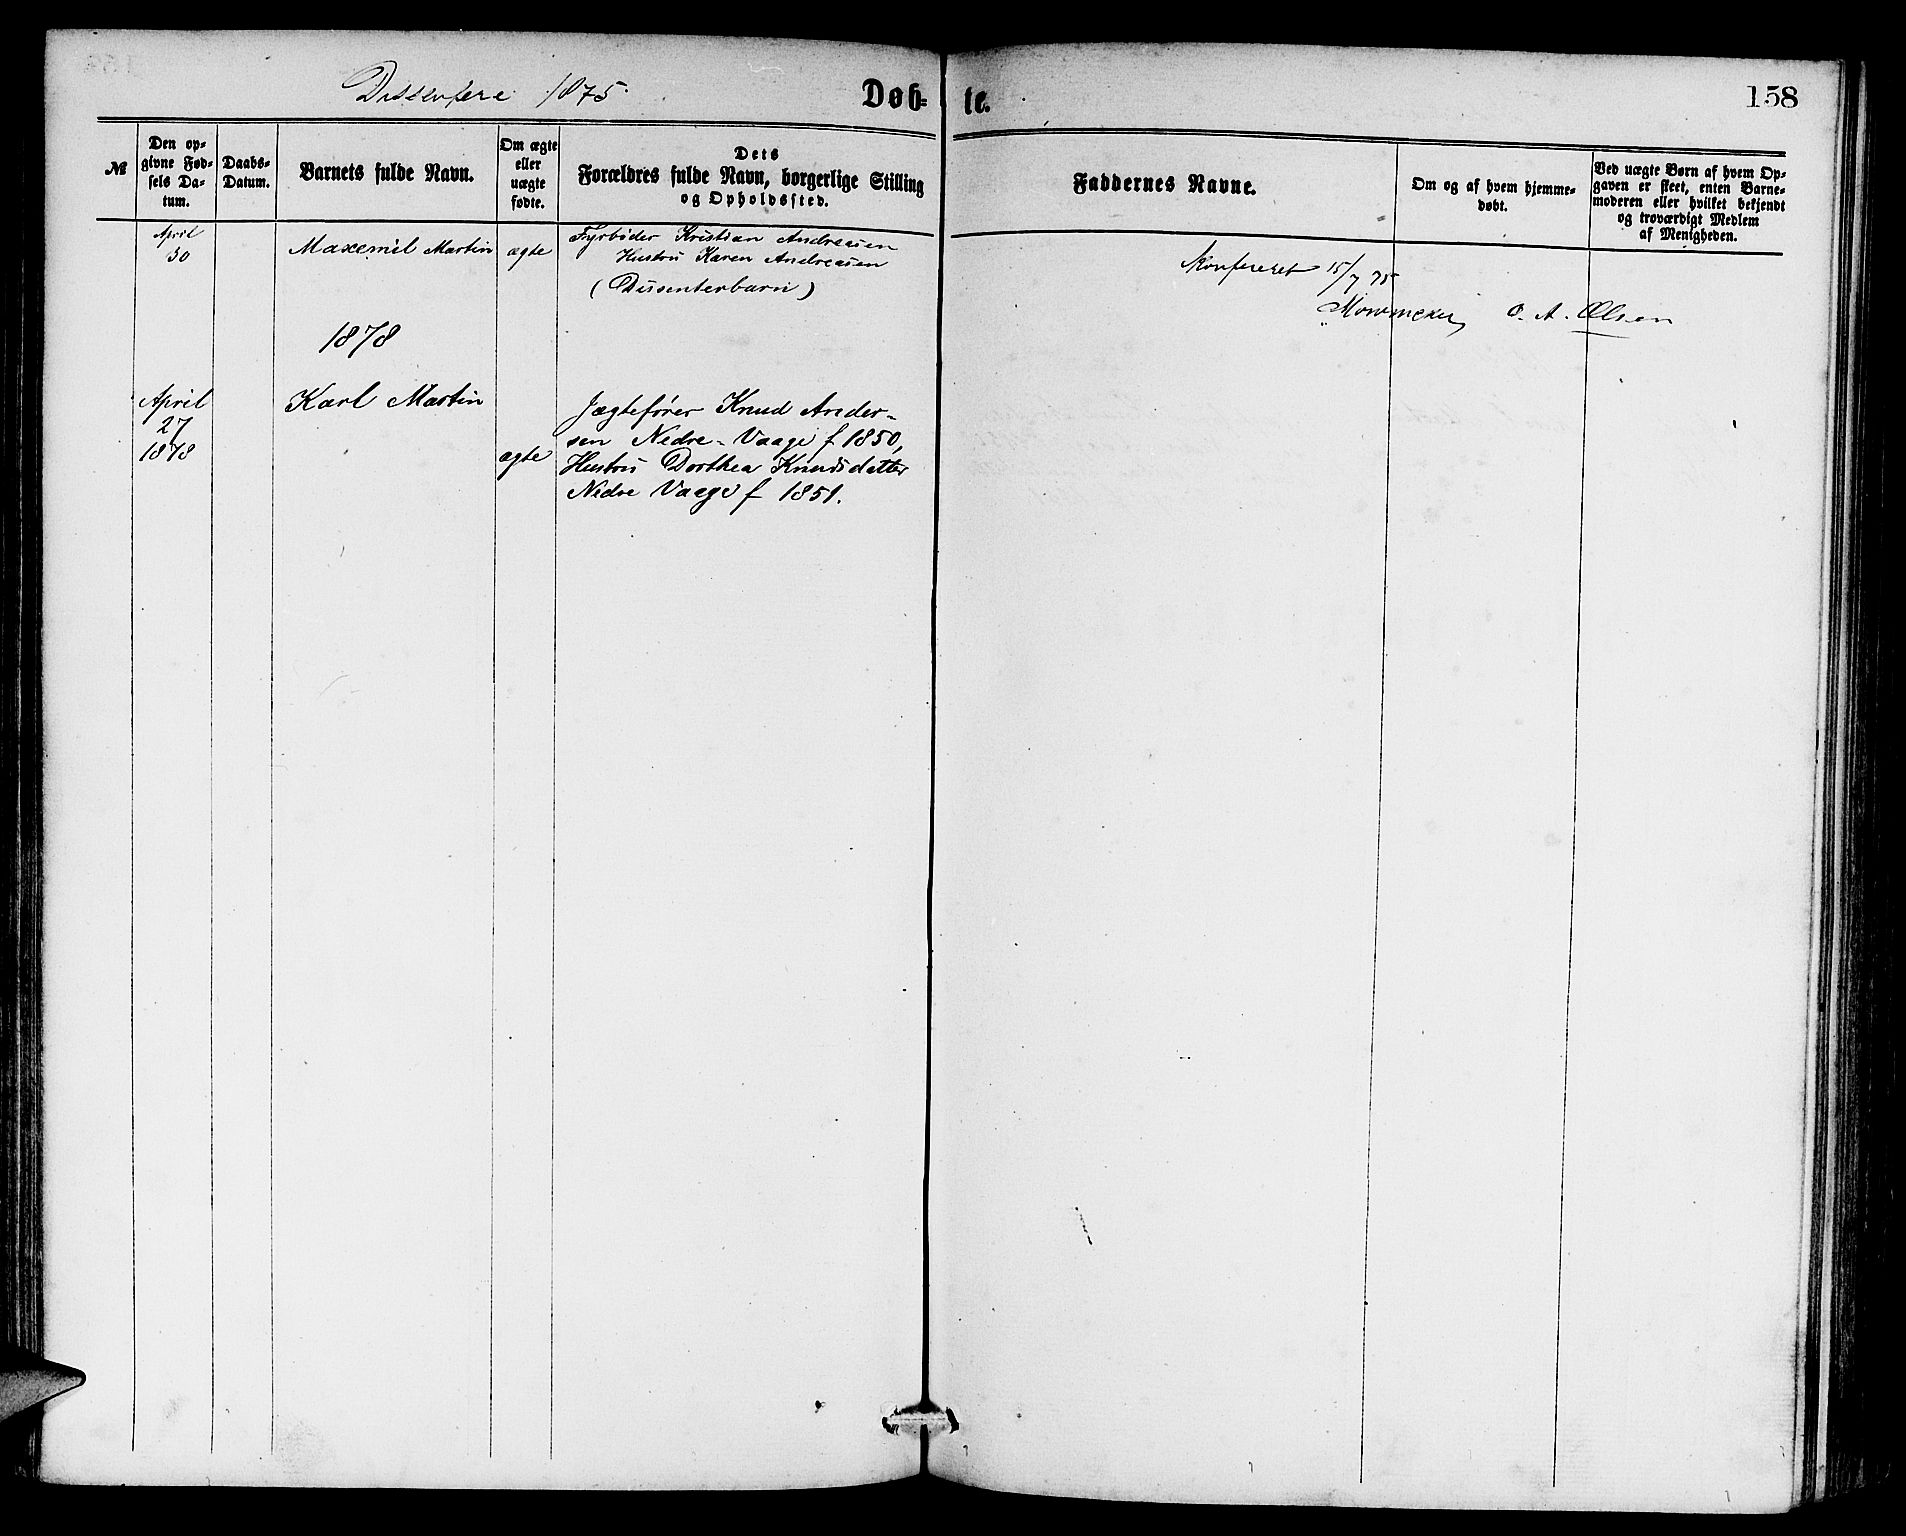 Dissentere 1875.
Døb-
te.
158
№
Den op-
givne Fød-
sels Da-
tum.
Daabs-
Datum.
Barnets fulde Navn.
Om ægte
eller
uægte
fødte.
Dets
Forældres fulde Navn, borgerlige Stilling
og Opholdssted.
Faddernes Navne.
Om og af hvem hjemme-
døbt.
Ved uægte Børn af hvem Op-
gaven er skeet, enten Barne-
moderen eller hvilket bekjendt
og troværdigt Medlem
af Menigheden.
April
30
Maxemil Martin
ægte
Fyrbøder Kristian Andreasen
Hustru Karen Andreasen
(Dissenterbarn)
Konfereret 15/7 75
O. A. Olsen
1878
April
27
1878
Karl Martin
ægte
Jægtefører Knud Ander-
sen Nedre-Vaage f 1850,
Hustru Dorthea Knudsdatter
Nedre Vaage f 1851.